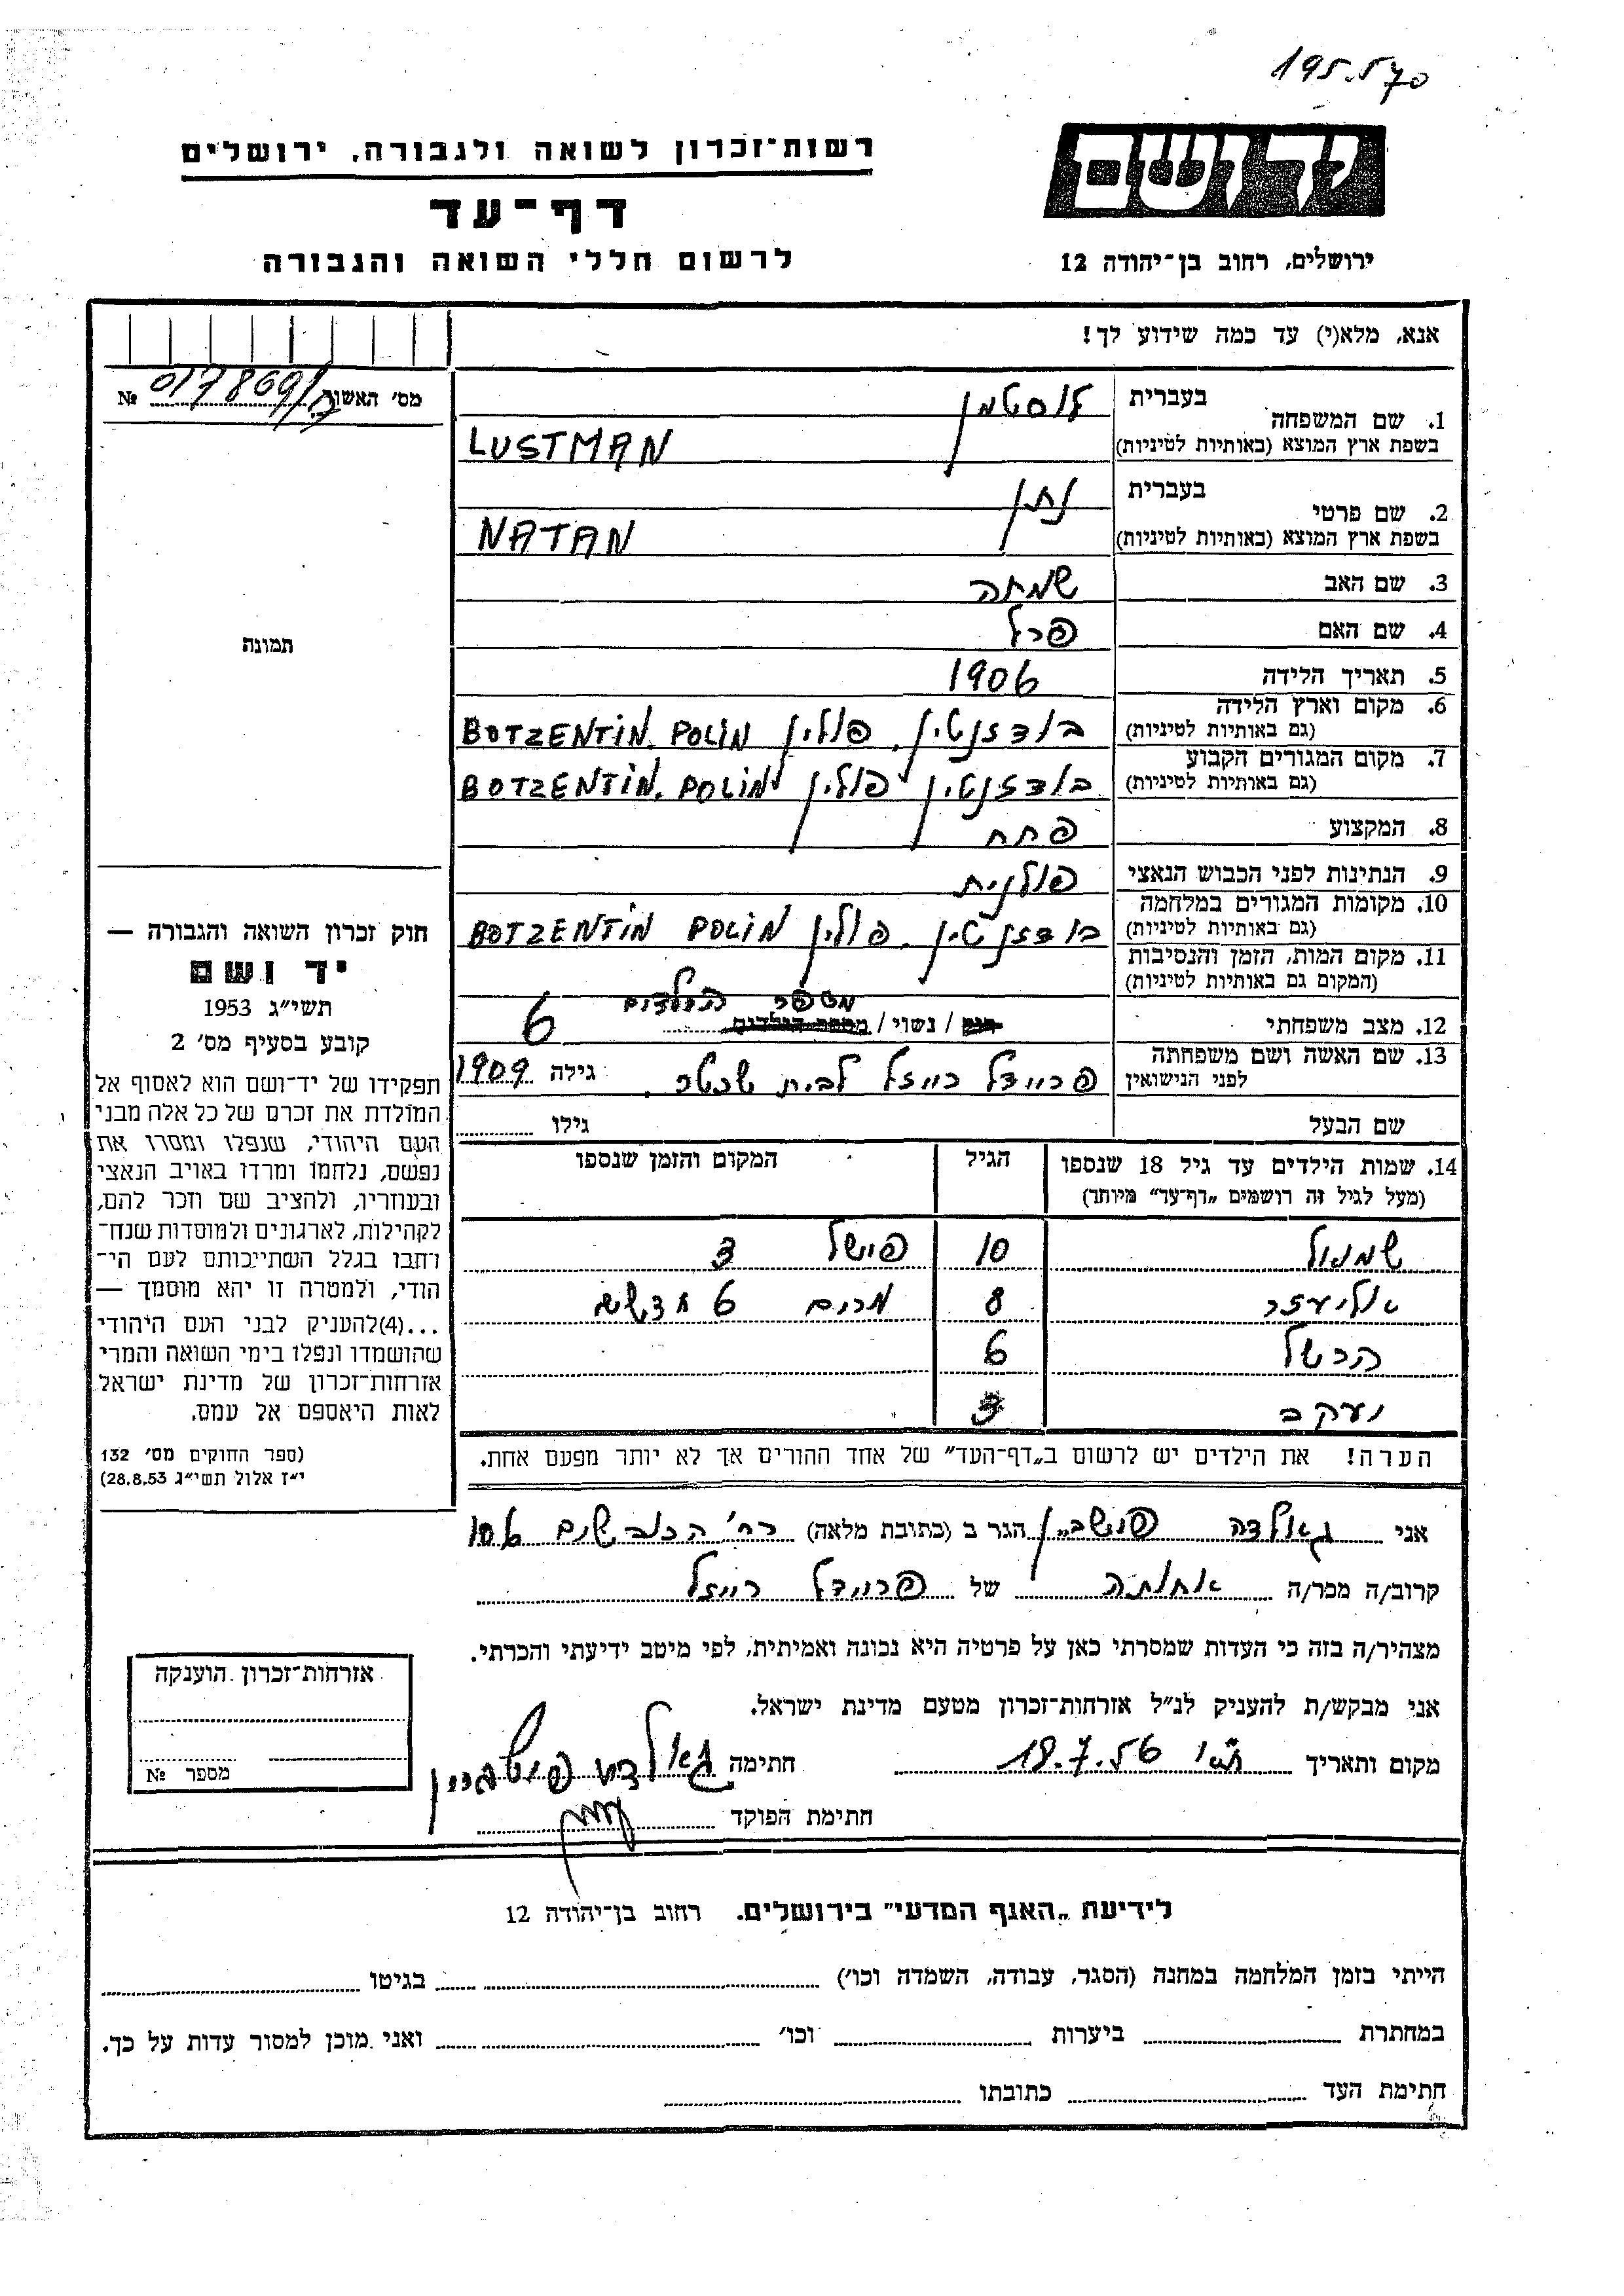 195.570
יד ושם
רשות־זכרון לשואה ולגבורה, ירושלים
דף־עד
לרשום חללי השואה והגבורה
ירושלים, רחוב בן־יהודה 12
אנא, מלא(י) עד כמה שידוע לך!
מס׳ האשור 017869/ № 
1. שם המשפחה בעברית לוסטמן
בשפת ארץ המוצא (באותיות לטיניות) LUSTMAN
2. שם פרטי בעברית נתן
בשפת ארץ המוצא (באותיות לטיניות) NATAN
3. שם האב שמחה
4. שם האם פרל
תמונה
5. תאריך הלידה 1906
6. מקום וארץ הלידה (גם באותיות לטיניות) בודזנטין. פולין BOTZENTIN. POLIN
7. מקום המגורים הקבוע (גם באותיות לטיניות) בודזנטין פולין BOTZENTIN. POLIN
8. המקצוע פחח
9. הנתינות לפני הכבוש הנאצי פולנית
10. מקומות המגורים במלחמה (גם באותיות לטיניות) בודזנטין. פולין BOTZENTIN POLIN
11. מקום המות, הזמן והנסיבות (המקום גם באותיות לטיניות)
12. מצב משפחתי רוק / נשוי / מספר הילדים מספר הילדים 6
13. שם האשה ושם משפחתה לפני הנישואין פריידל רייזל לבית שכטר. גילה 1909
שם הבעל גילו
14. שמות הילדים עד גיל 18 שנספו (מעל לגיל זה רושמים „דף־עד” מיוחד) הגיל המקום והזמן שנספו
שמואל 10 פישל 3
אליעזר 8 מרים 6 חדשים
הרשל 6
יעקב 3
הערה! את הילדים יש לרשום ב„דף־העד” של אחד ההורים אך לא יותר מפעם אחת.
חוק זכרון השואה והגבורה —
יד ושם
תשי״ג 1953
קובע בסעיף מס׳ 2
תפקידו של יד־ושם הוא לאסוף אל
המולדת את זכרם של כל אלה מבני
העם היהודי, שנפלו ומסרו את
נפשם, נלחמו ומרדו באויב הנאצי
ובעוזריו, ולהציב שם וזכר להם,
לקהילות, לארגונים ולמוסדות שנח־
רחבו בגלל השתייכותם לעם הי־
הודי, ולמטרה זו יהא מוסמך —
...(4)להעניק לבני העם היהודי
שהושמדו ונפלו בימי השואה והמרי
אזרחות־זכרון של מדינת ישראל
לאות היאספם אל עמם.
(ספר החוקים מס׳ 132
י״ז אלול תשי״ג 28.8.53)
אני גאולדה פישביין הגר ב (כתובת מלאה) רח׳ הכובשים 106
קרוב/ה מכר/ה אחותה של פריידל רייזל
מצהיר/ה בזה כי העדות שמסרתי כאן על פרטיה היא נכונה ואמיתית, לפי מיטב ידיעתי והכרתי.
אני מבקש/ת להעניק לנ״ל אזרחות־זכרון מטעם מדינת ישראל.
מקום ותאריך 18.7.56 חתימה גאולדה פישביין
חתימת הפוקד
אזרחות־זכרון הוענקה
מספר №
לידיעת „האגף המדעי” בירושלים. רחוב בן־יהודה 12
הייתי בזמן המלחמה במחנה (הסגר, עבודה, השמדה וכו׳) בגיטו
במחתרת ביערות וכו׳ ואני מוכן למסור עדות על כך.
חתימת העד כתובתו